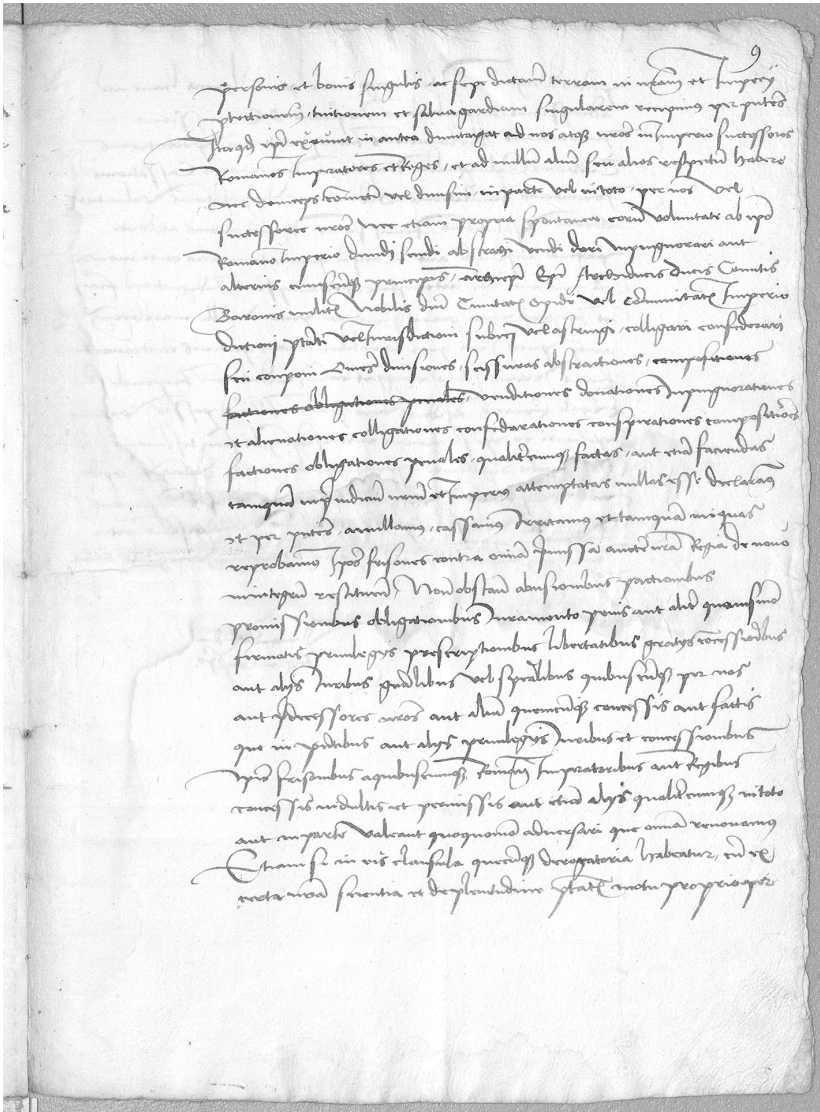 9
personis et bonis singulis ac sepedictam terram in nram et Imperij
ptectionem, tuitionem et salvagardiam singularem recepimus per pntes
Itaqd ipi Frisones in antea dumtaxat ad nos atqz nros in Imperio successores
Romanos Imperatores et Reges, et ad nullum alium seu alios respectum habere
nec deinceps coniunctim vel divisim, in parte vel in toto, per nos vel
successores nros nec etiam propria spontanea eorum voluntate ab ipo
Romano Imperio dividi scindi abstrahi vendi dari inpignorari aut
alterius cuiuscunqz principis, archiepi Epi Archiducis Ducis Comitis
Baronis militis Nobilis dni Civitatis Opidi vel Comunitatis Imperio
ditioni ptati vel Jurisdictioni subijci vel astringi, colligari confederari
seu componi Omnes divisiones, scissuras abstractiones, compositiones
factiones obligationes penales, venditiones donationes Inpignorationes
et alienationes colligationes confederationes conspirationes compositiones
factiones obligationes penales, qualitercunqz factas, aut etiam faciendas
tamquam in preiudicium nrum et Imperij attemptatas nullas esse declaramus
et per pntes, anullamus, cassamus Irritamus et tamquam iniquas
reprobamus Ipos frisones contra omnia premissa aucte nra Regia de novo
in integrum restituentes, Non obstantibus abusionibus pactionibus
promissionibus obligationibus Juramento penis aut aliter quovismodo
firmatis privilegijs prescriptionibus libertatibus gratijs concessionibus
aut alijs Juribus gnalibus vel spealibus quibuscunqz per nos
aut pdecessores nros aut alium quemcunqz concessis aut factis
que in pdictibus aut alijs privilegijs Juribus et concessionibus
ipis frisonibus a quibuscumqz Romanis Imperatoribus aut Regibus
concessis indultis et permissis aut etiam alijs qualitercumqz in toto
aut in parte valeant quoquomodo adversari que omnia revocamus
Etiam si in eis clausula quecunqz derogatoria habeatur, cum ex
certa nra scientia et de plenitudine ptatis motu proprio per